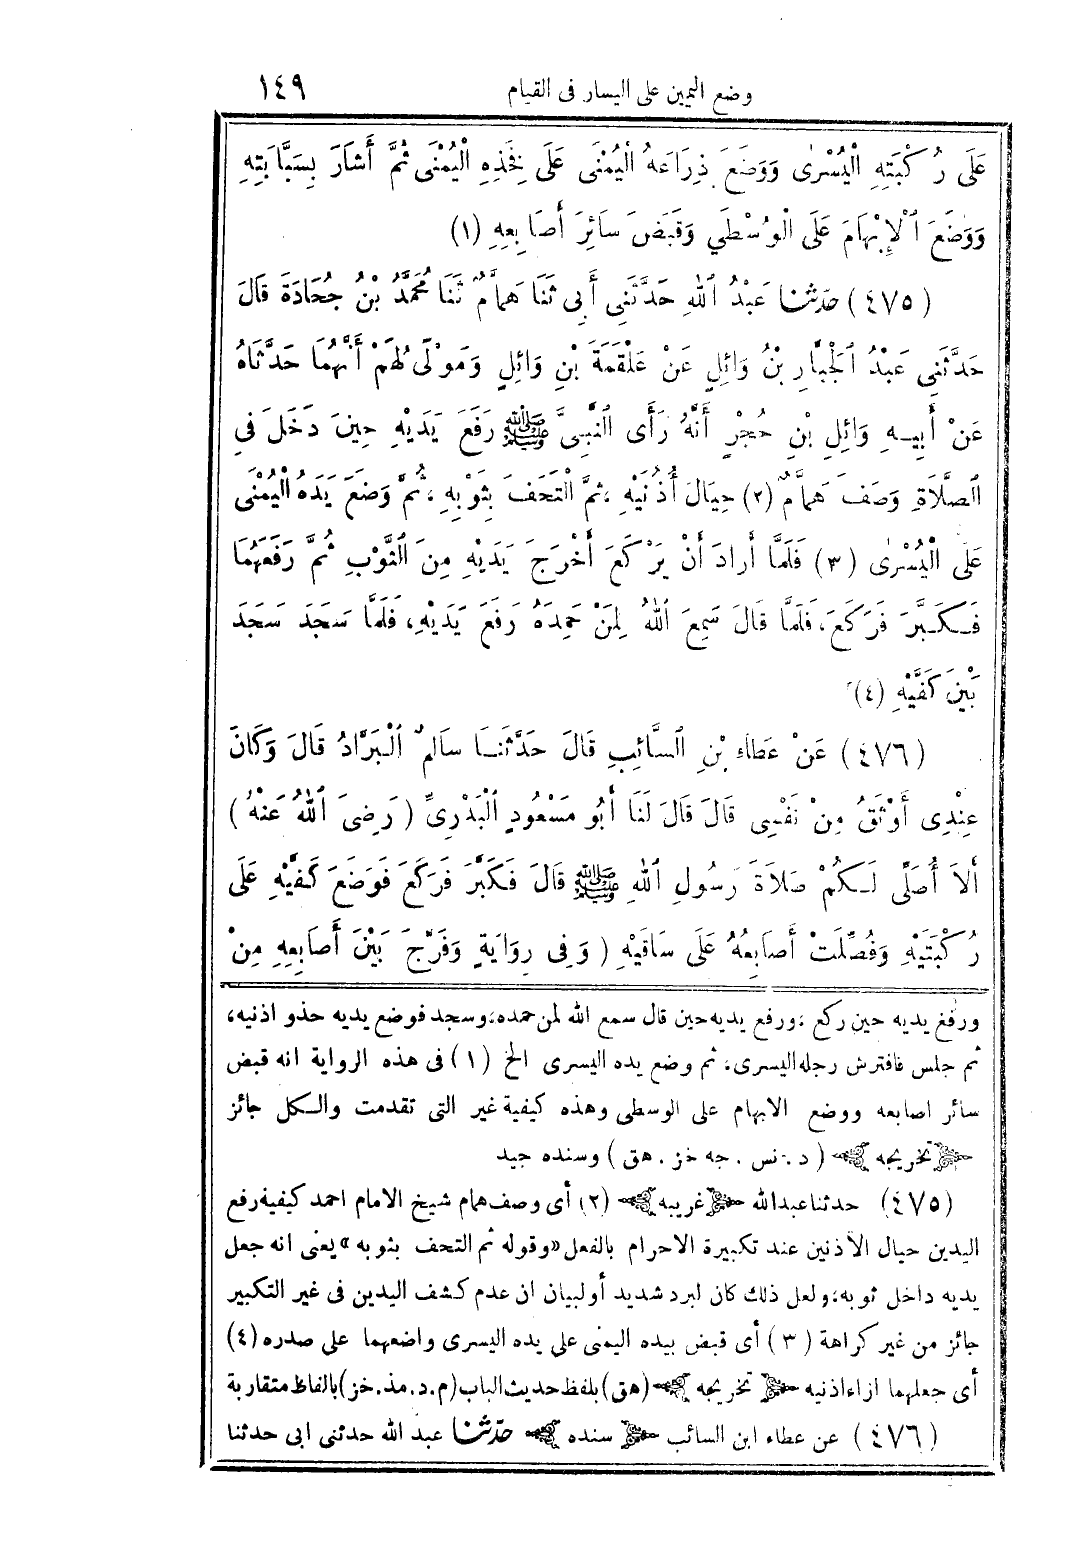 وضع اليمين على اليسار فى القيام ١٤٩
عَلَى رُكْبَتِهِ الْيُسْرَى وَوَضَعَ ذِرَاعَهُ الْيُمْنَى عَلَى فَخِذِهِ الْيُمْنَى ثُمَّ أَشَارَ بِسَبَّابَتِهِ
وَوَضَعَ الْإِبْهَامَ عَلَى الْوُسْطَي وَقَبَضَ سَائِرَ أَصَابِعِهِ (١)
(٤٧٥) حَدَّثَنَا عَبْدُ اللهِ حَدَّثَنِي أَبِى ثَنَا هَمَّامٌ ثَنَا مُحَمَّدُ بْنُ جُحَادَةَ قَالَ
حَدَّثَنِي عَبْدُ الْجَبَّارِ بْنُ وَائِلٍ عَنْ عَلْقَمَةَ بْنِ وَائِلٍ وَمَوْلًى لَهُمْ أَنَّهُمَا حَدَّثَاهُ
عَنْ أَبِيهِ وَائِلِ بْنِ حُجْرٍ أَنَّهُ رَأَى النَّبِىَّ ﷺ رَفَعَ يَدَيْهِ حِينَ دَخَلَ فِى
الصَّلَاةِ وَصَفَ هَمَّامٌ (٢) حِيَالَ أُذُنَيْهِ، ثُمَّ الْتَحَفَ بِثَوْبِهِ، ثُمَّ وَضَعَ يَدَهُ الْيُمْنَى
عَلَى الْيُسْرَى (٣) فَلَمَّا أَرَادَ أَنْ يَرْكَعَ أَخْرَجَ يَدَيْهِ مِنَ الثَّوْبِ ثُمَّ رَفَعَهُمَا
فَكَبَّرَ فَرَكَعَ، فَلَمَّا قَالَ سَمِعَ اللهُ لِمَنْ حَمِدَهُ رَفَعَ يَدَيْهِ، فَلَمَّا سَجَدَ سَجَدَ
بَيْنَ كَفَّيْهِ (٤)
(٤٧٦) عَنْ عَطَاءِ بْنِ السَّائِبِ قَالَ حَدَّثَنَا سَالِمٌ الْبَرَّادُ قَالَ وَكَانَ
عِنْدِى أَوْثَقُ مِنْ نَفْسِى قَالَ قَالَ لَنَا أَبُو مَسْعُودٍ الْبَدْرِىُّ (رَضِىَ اللهُ عَنْهُ)
أَلَا أُصَلِّى لَكُمْ صَلَاةَ رَسُولِ اللهِ ﷺ قَالَ فَكَبَّرَ فَرَكَعَ فَوَضَعَ كَفَّيْهِ عَلَى
رُكْبَتَيْهِ وَفُصِّلَتْ أَصَابِعُهُ عَلَى سَاقَيْهِ (وَفِى رِوَايَةٍ وَفَرَّجَ بَيْنَ أَصَابِعِهِ مِنْ
ورفع يديه حين ركع، ورفع يديه حين قال سمع الله لمن حمده، وسجد فوضع يديه حذو اذنيه،
ثم جلس فافترش رجله اليسرى، ثم وضع يده اليسرى الخ (١) فى هذه الرواية انه قبض
سائر اصابعه ووضع الابهام على الوسطى وهذه كيفية غير التى تقدمت والكل جائز
تخريجه (د. نس. جه خز. هق) وسنده جيد
(٤٧٥) حدثنا عبدالله غريبه (٢) أى وصف همام شيخ الامام احمد كيفية رفع
اليدين حيال الأذنين عند تكبيرة الاحرام بالفعل «وقوله ثم التحف بثوبه» يعنى انه جعل
يديه داخل ثوبه، ولعل ذلك كان لبرد شديد أو لبيان ان عدم كشف اليدين فى غير التكبير
جائز من غير كراهة (٣) أى قبض بيده اليمنى على يده اليسرى واضعهما على صدره (٤)
أى جعلهما ازاء اذنيه تخريجه (هق) بلفظ حديث الباب (م.د.مذ.خز) بالفاظ متقاربة
(٤٧٦) عن عطاء ابن السائب سنده حَدَّثَنَا عبد الله حدثنى ابى حدثنا